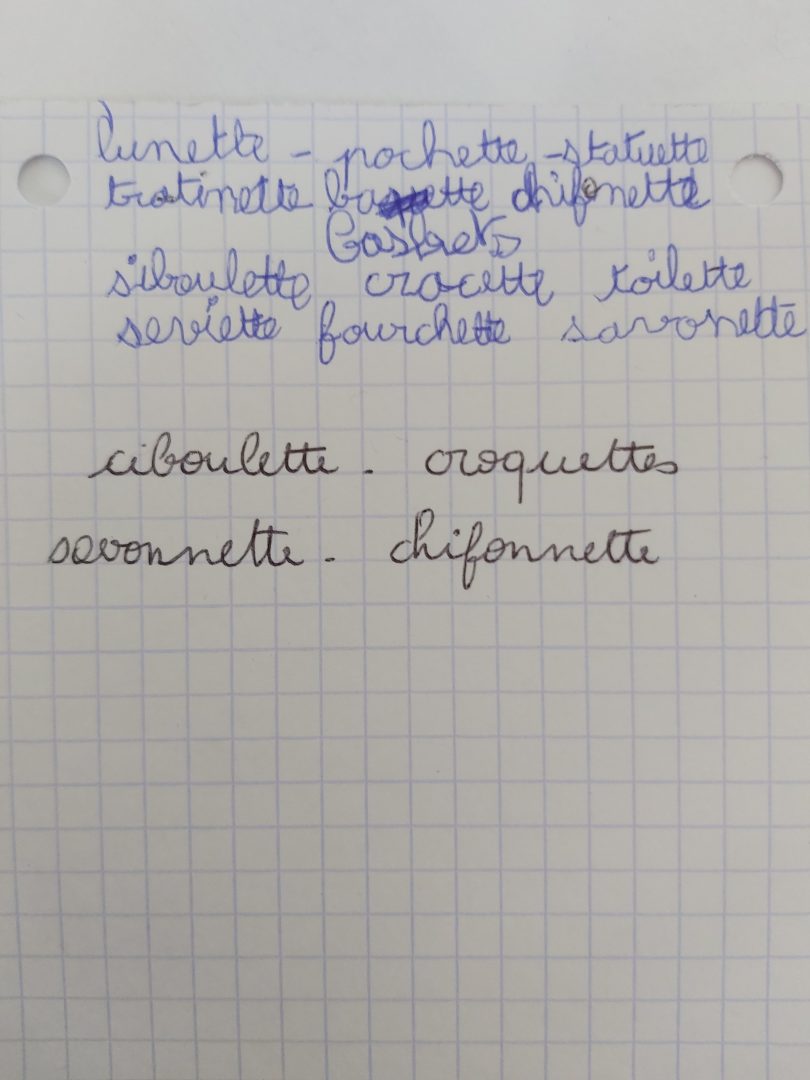 lunette - pochette - statuette
tratinette ba ette chifonette
Baskets
siboulette crocette toilette
serviette fourchette savonette
ciboulette - croquettes
savonnette - chifonnette